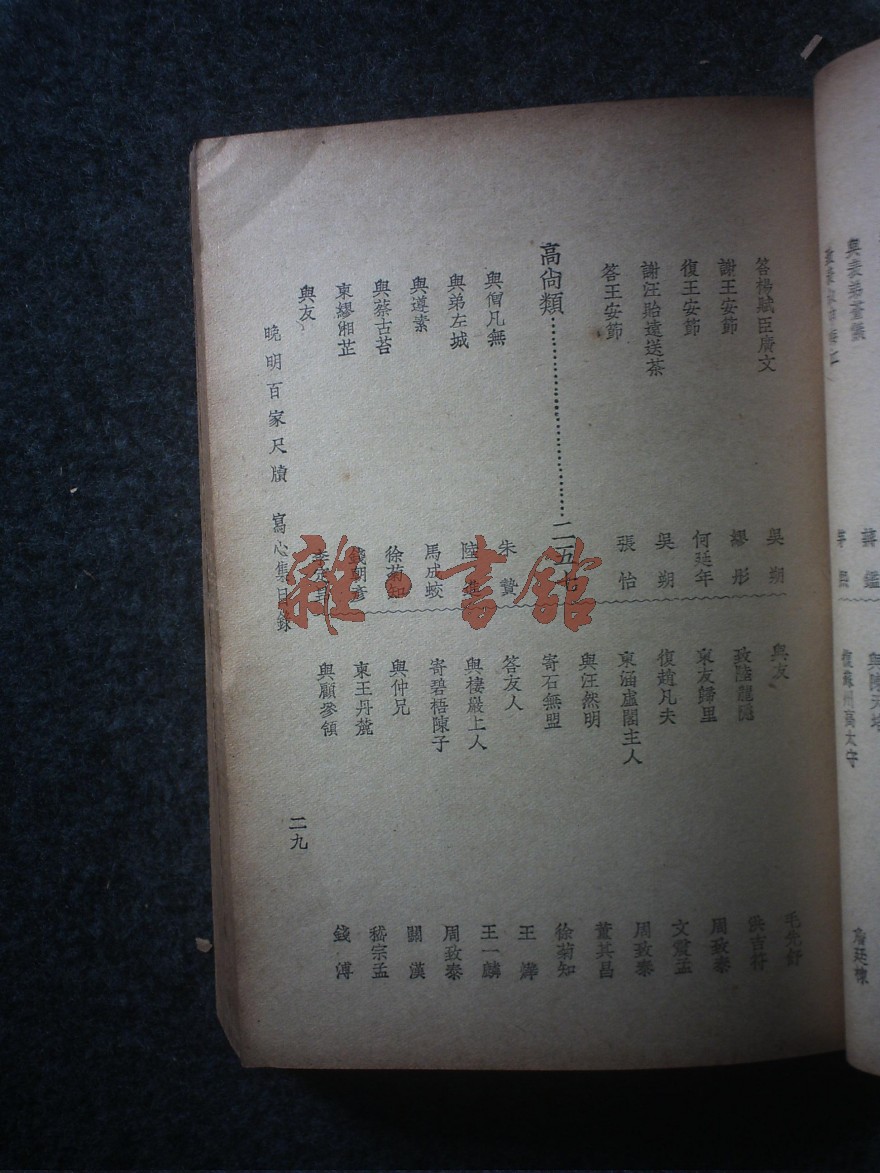 答楊賦臣廣文 吳朔
謝王安節 繆彤
復王安節 何廷年
謝汪貽遠送茶 吳朔
答王安節 張怡
高尙類 二五七
與僧凡無 朱贊
與弟左城 陸進
與遵素 馬成蛟
與蔡古苔 徐菊知
柬繆湘芷
與友
與友 毛先舒
致陸麗隱 洪吉符
柬友歸里 周致泰
復趙凡夫 文震孟
柬涵虛閣主人 周致泰
與汪然明 董其昌
寄石無盟 徐菊知
答友人 王
與棲巖上人 王一麟
寄碧梧陳子 周致泰
與仲兄 關漢
柬王丹麓 嵇宗孟
與顧參領 錢溥
晚明百家尺牘 寫心集目錄 二九
雜·書館
與表弟董
蔣鑑
李
復蘇州高太守